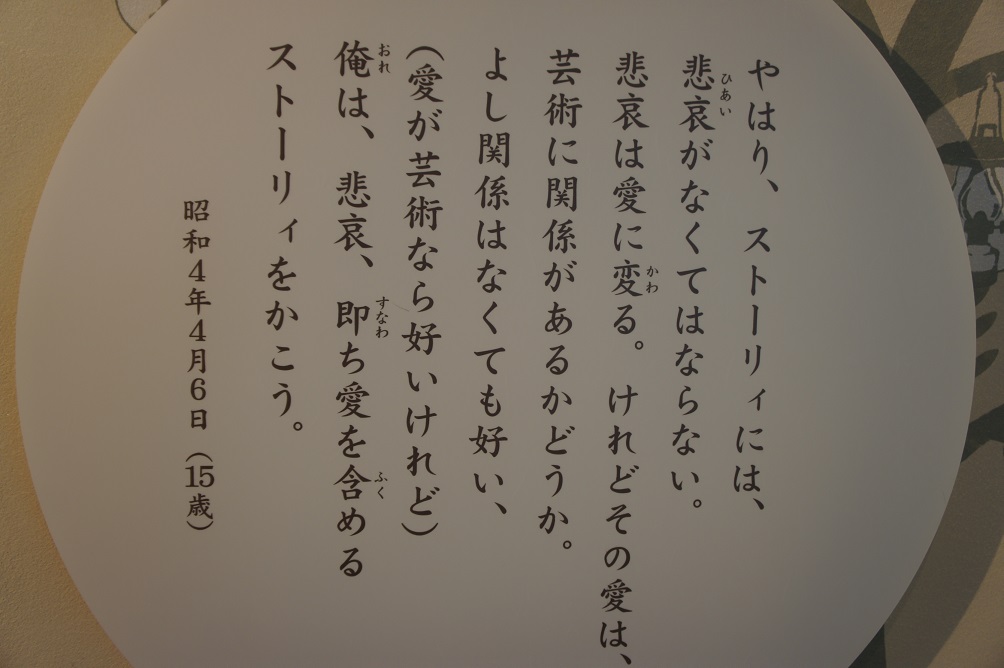 やはり、ストーリィには、
悲哀がなくてはならない。
悲哀は愛に変る。けれどその愛は、
芸術に関係があるかどうか。
よし関係はなくても好い、
(愛が芸術なら好いけれど)
俺は、悲哀、即ち愛を含める
ストーリィをかこう。
昭和4年4月6日(15歳)
ひあい
かわ
おれ
すなわ
ふく